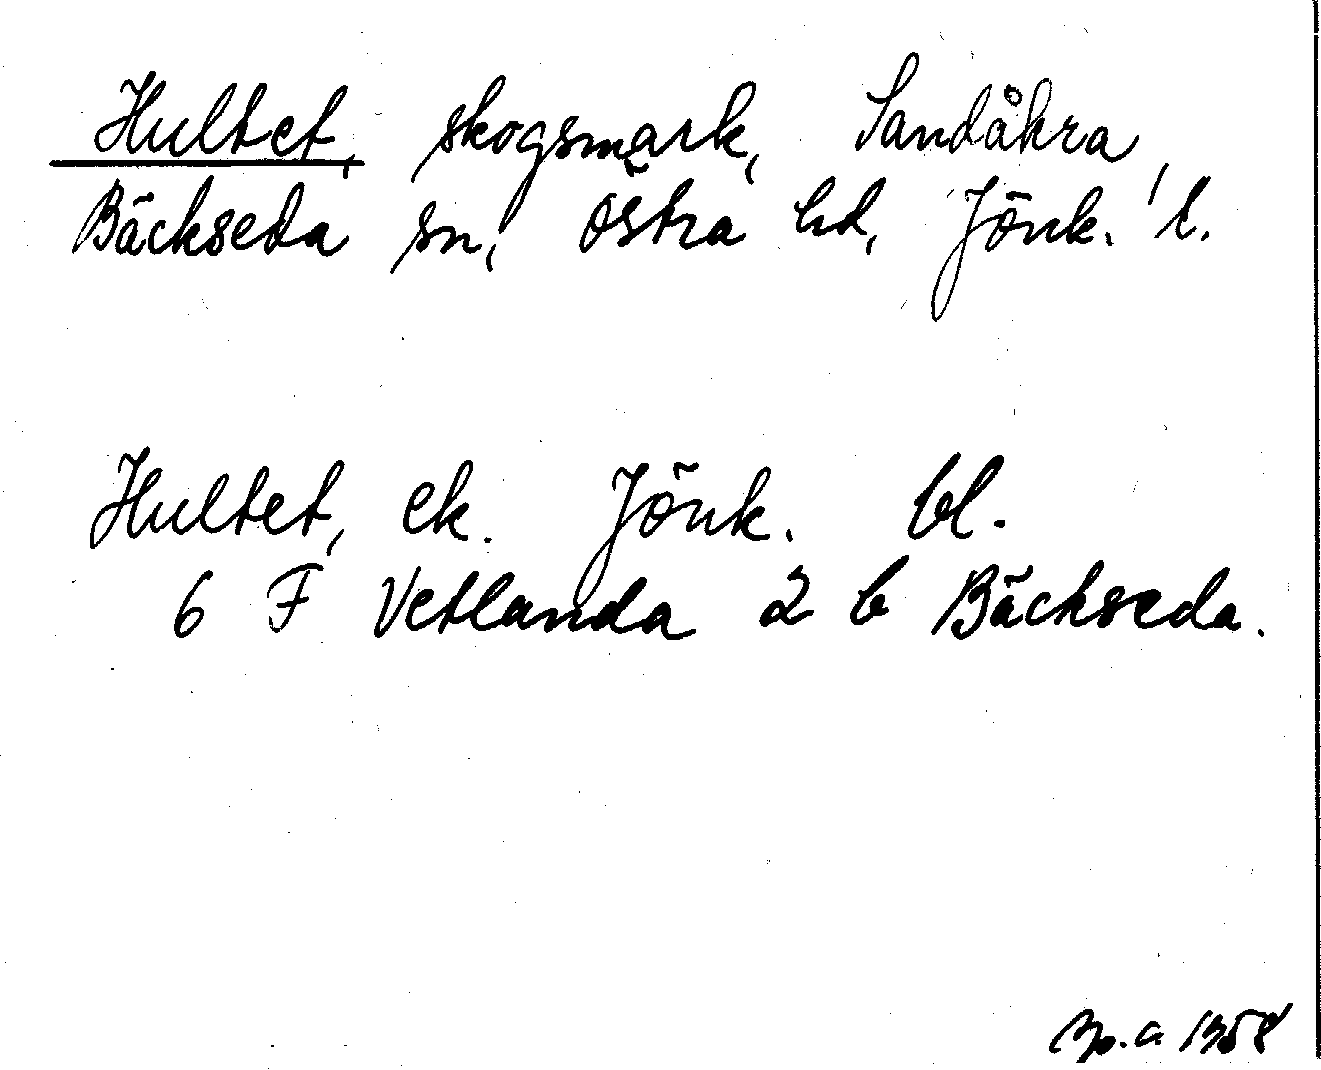 Hultet, skogsmark, Sandåkra,
Bäckseda sn, Östra hd, Jönk. l.
Hultet, ek. Jönk. bl.
6 F Vetlanda 2 b Bäckseda.